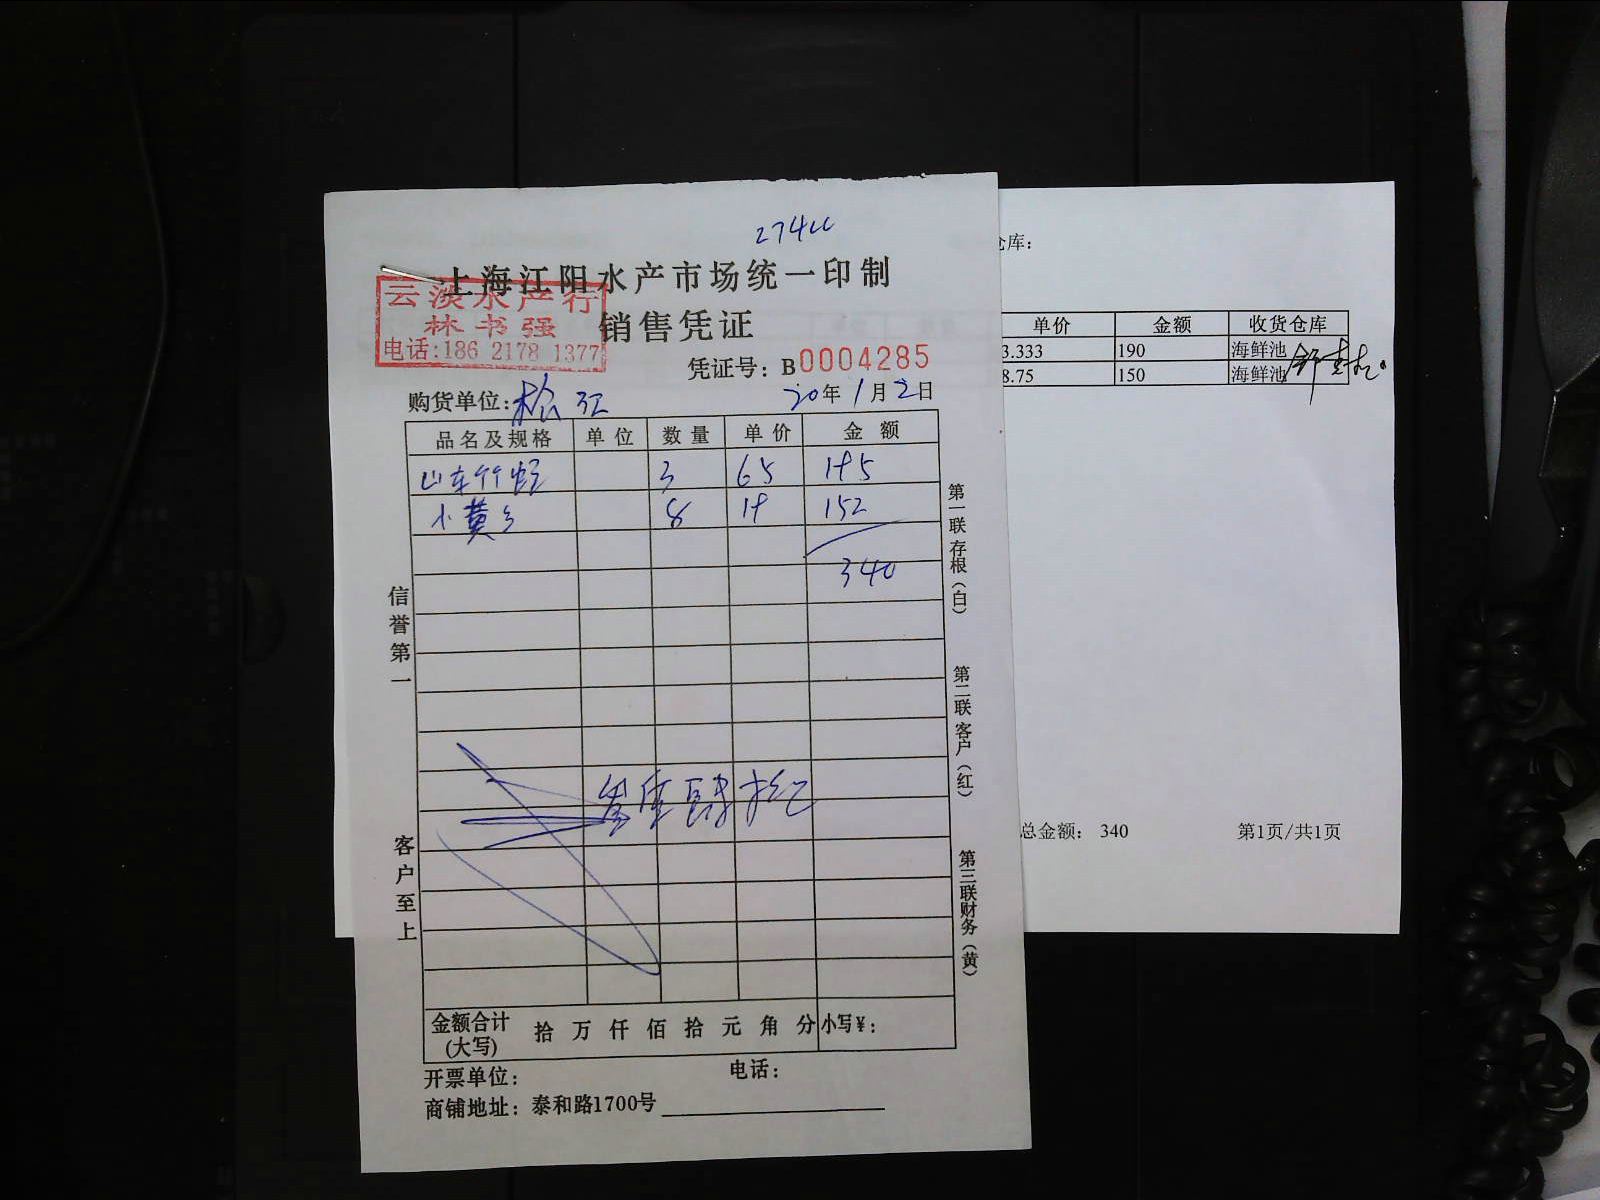 274
上海江阳水产市场统一印制
云淡水产行
林书强
电话:186 2178 1377
销售凭证
凭证号：B0004285
购货单位：松江 20年1月2日
品名及规格 单位 数量 单价 金额
山东竹蛏 3 65 195
小黄鱼 8 19 152
340
叁佰肆拾元
信誉第一
客户至上
金额合计(大写) 拾 万 仟 佰 拾 元 角 分 小写¥：
开票单位： 电话：
商铺地址：泰和路1700号
第一联存根（白）
第二联客户（红）
第三联财务（黄）
仓库：
单价 金额 收货仓库
3.333 190 海鲜池
8.75 150 海鲜池
总金额： 340 第1页/共1页